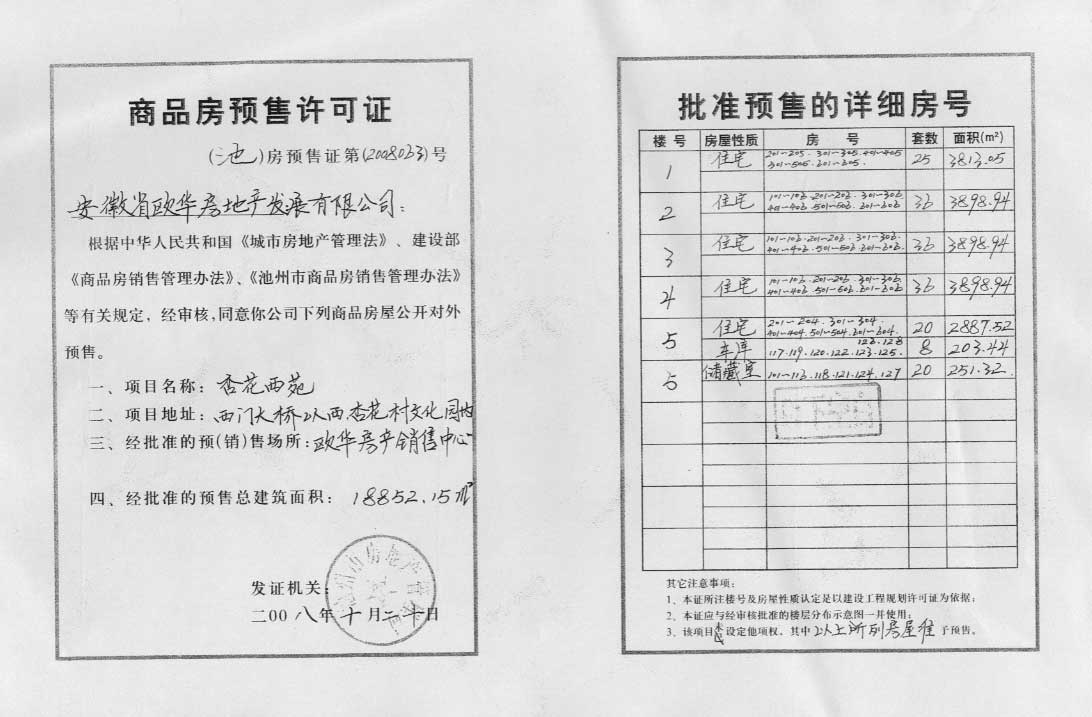 商品房预售许可证
(池)房预售证第(2008033)号
安徽省欧华房地产发展有限公司:
根据中华人民共和国《城市房地产管理法》、建设部
《商品房销售管理办法》、《池州市商品房销售管理办法》
等有关规定,经审核,同意你公司下列商品房屋公开对外
预售。
一、项目名称:杏花西苑
二、项目地址:西门大桥以西.杏花村文化园内
三、经批准的预(销)售场所:欧华房产销售中心
四、经批准的预售总建筑面积:18852.15㎡
发证机关:
二00八年十月二十日
批准预售的详细房号
楼号 房屋性质 房号 套数 面积(m²)
1 住宅 201~205.301~305.401~405 25 3813.05
501~505.601~605.
2 住宅 101~106.201~206.301~306 36 3898.94
401~406.501~506.601~606
3 住宅 101~106.201~206.301~306. 36 3898.94
401~406.501~506.601~606.
4 住宅 101~106.201~206.301~306 36 3898.94
401~406.501~506.601~606
5 住宅 201~204.301~304. 20 2887.52
401~404.501~504.601~604.
126.128
车库 117.119.120.122.123.125. 8 203.44
储藏室 101~116.118.121.124.127 20 251.32.
其它注意事项:
1、本证所注楼号及房屋性质认定是以建设工程规划许可证为依据;
2、本证应与经审核批准的楼层分布示意图一并使用;
3、该项目未设定他项权,其中以上所列房屋准予预售。